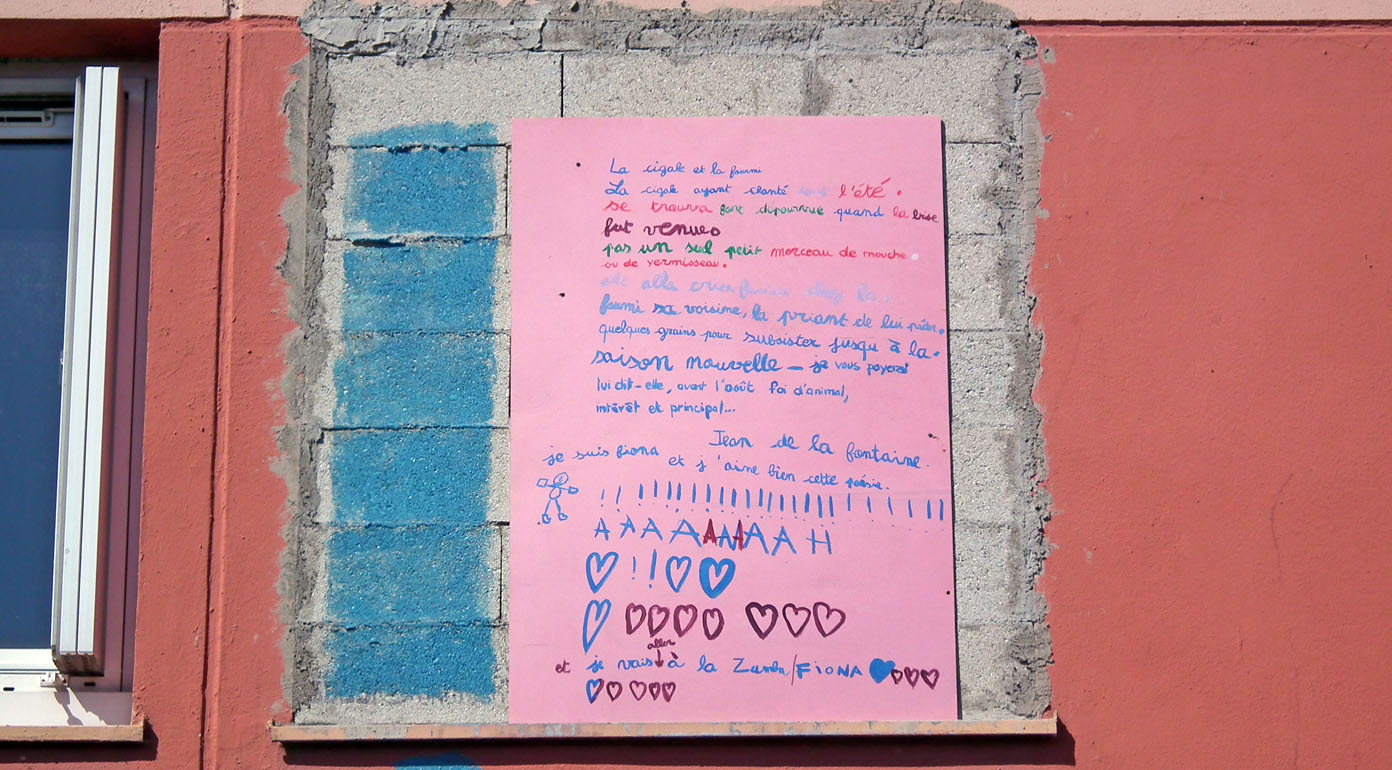 La cigale et la fourmi
La cigale ayant chanté tout l'été.
se trouva fort dépourvue quand la bise
fut venue
pas un seul petit morceau de mouche
ou de vermisseau.
elle alla crier famine chez la
fourmi sa voisine, la priant de lui prêter
quelques grains pour subsister jusqu à la
saison nouvelle – je vous payerai
lui dit-elle, avant l'août foi d'animal,
intérêt et principal...
Jean de la fontaine.
je suis fiona et j'aime bien cette poésie.
AAAAAAAAAH
!!
aller
et je vais à la Zumba/FIONA